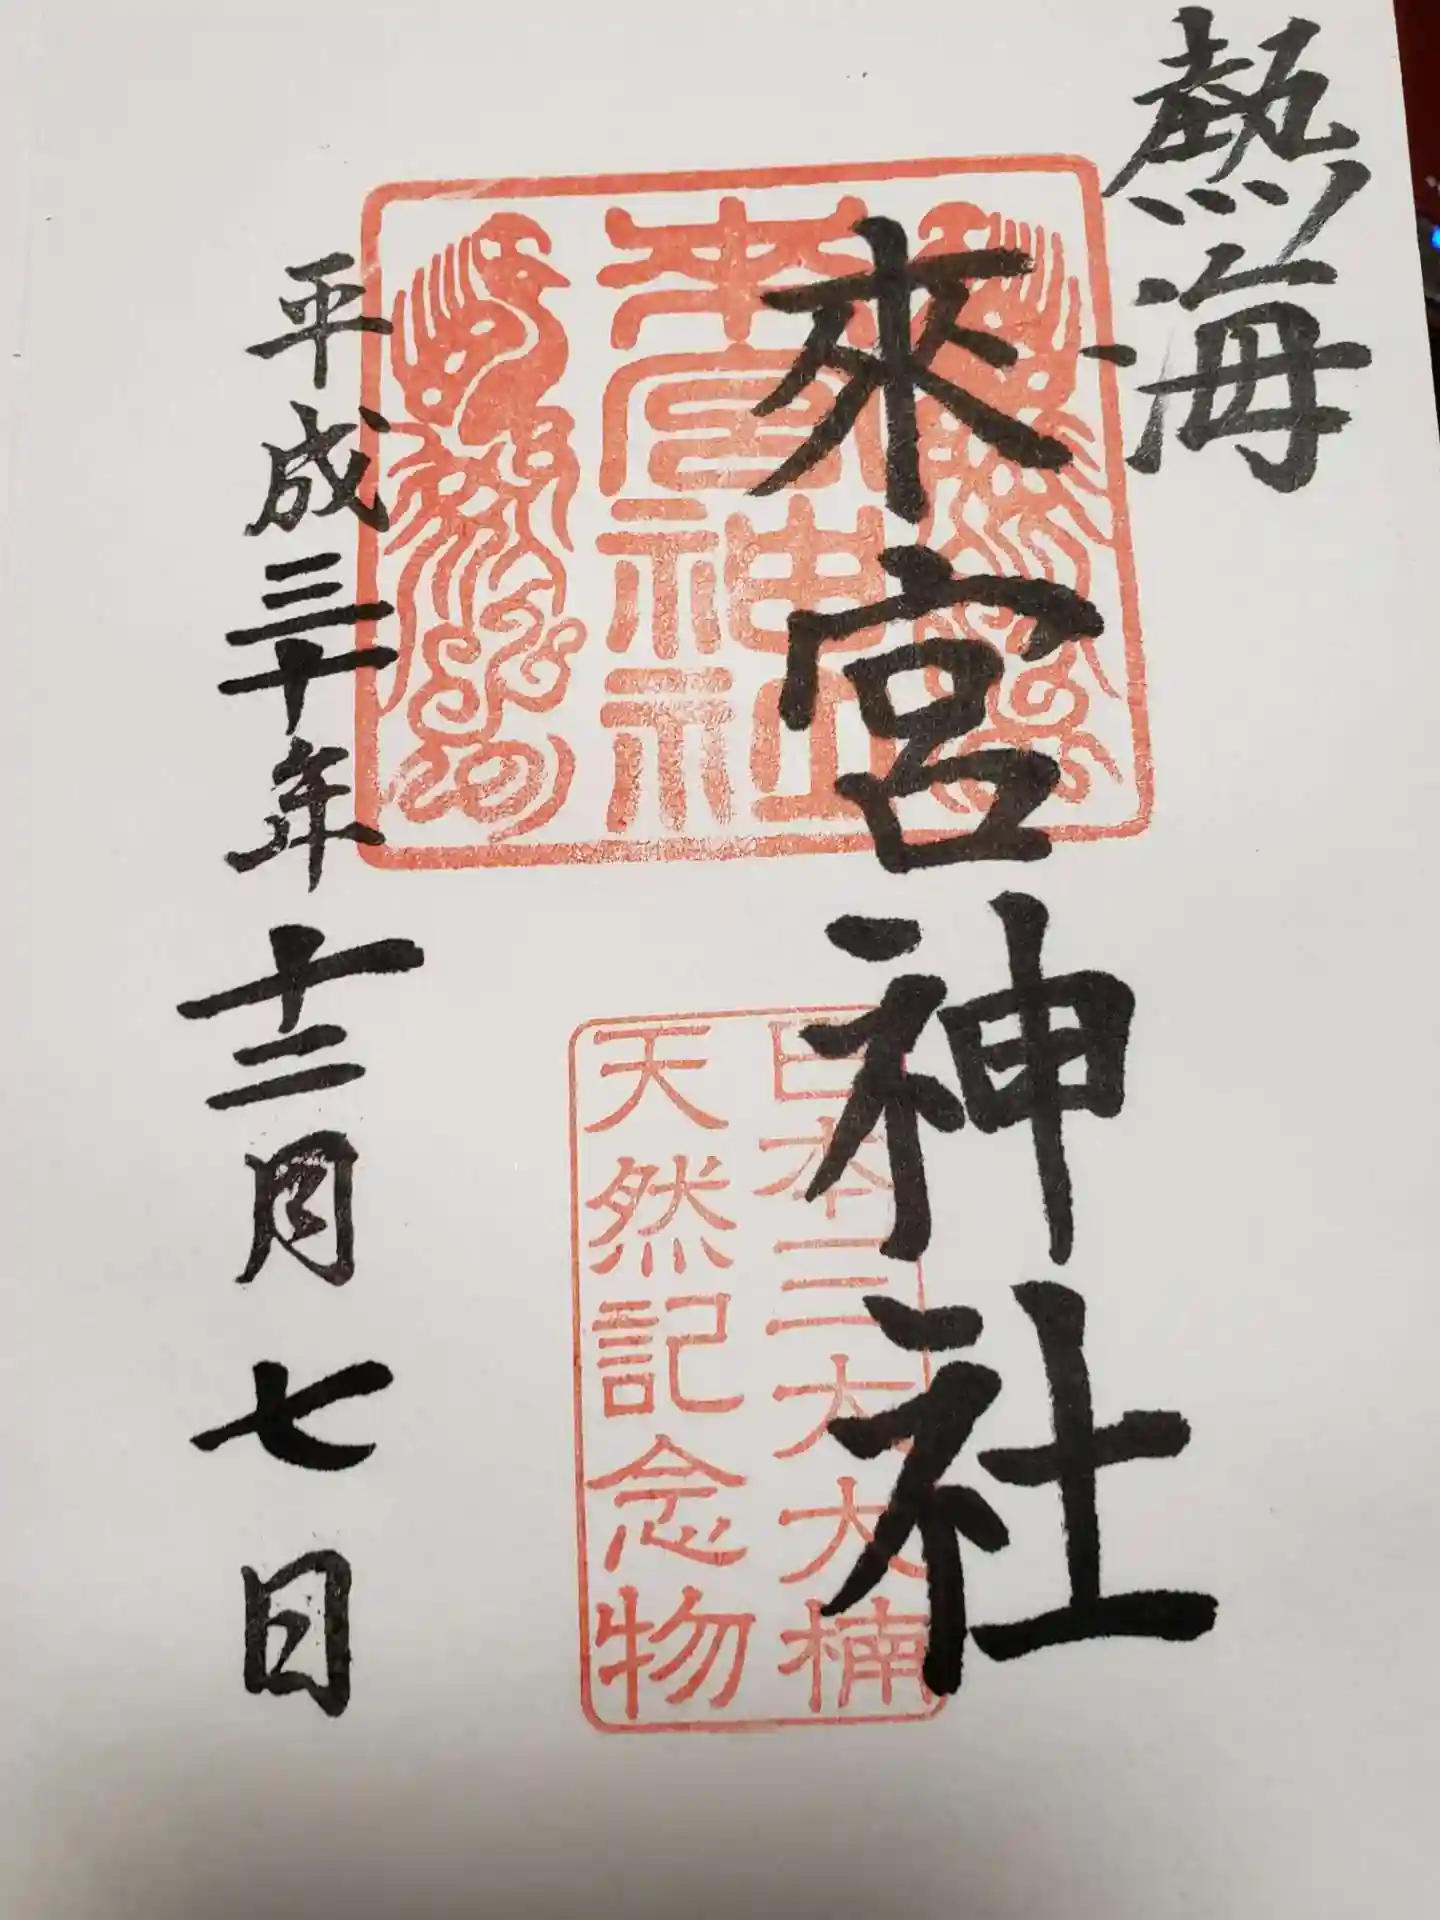 熱海
來宮神社
來宮神社
日本三大大楠
天然記念物
平成三十年十二月七日